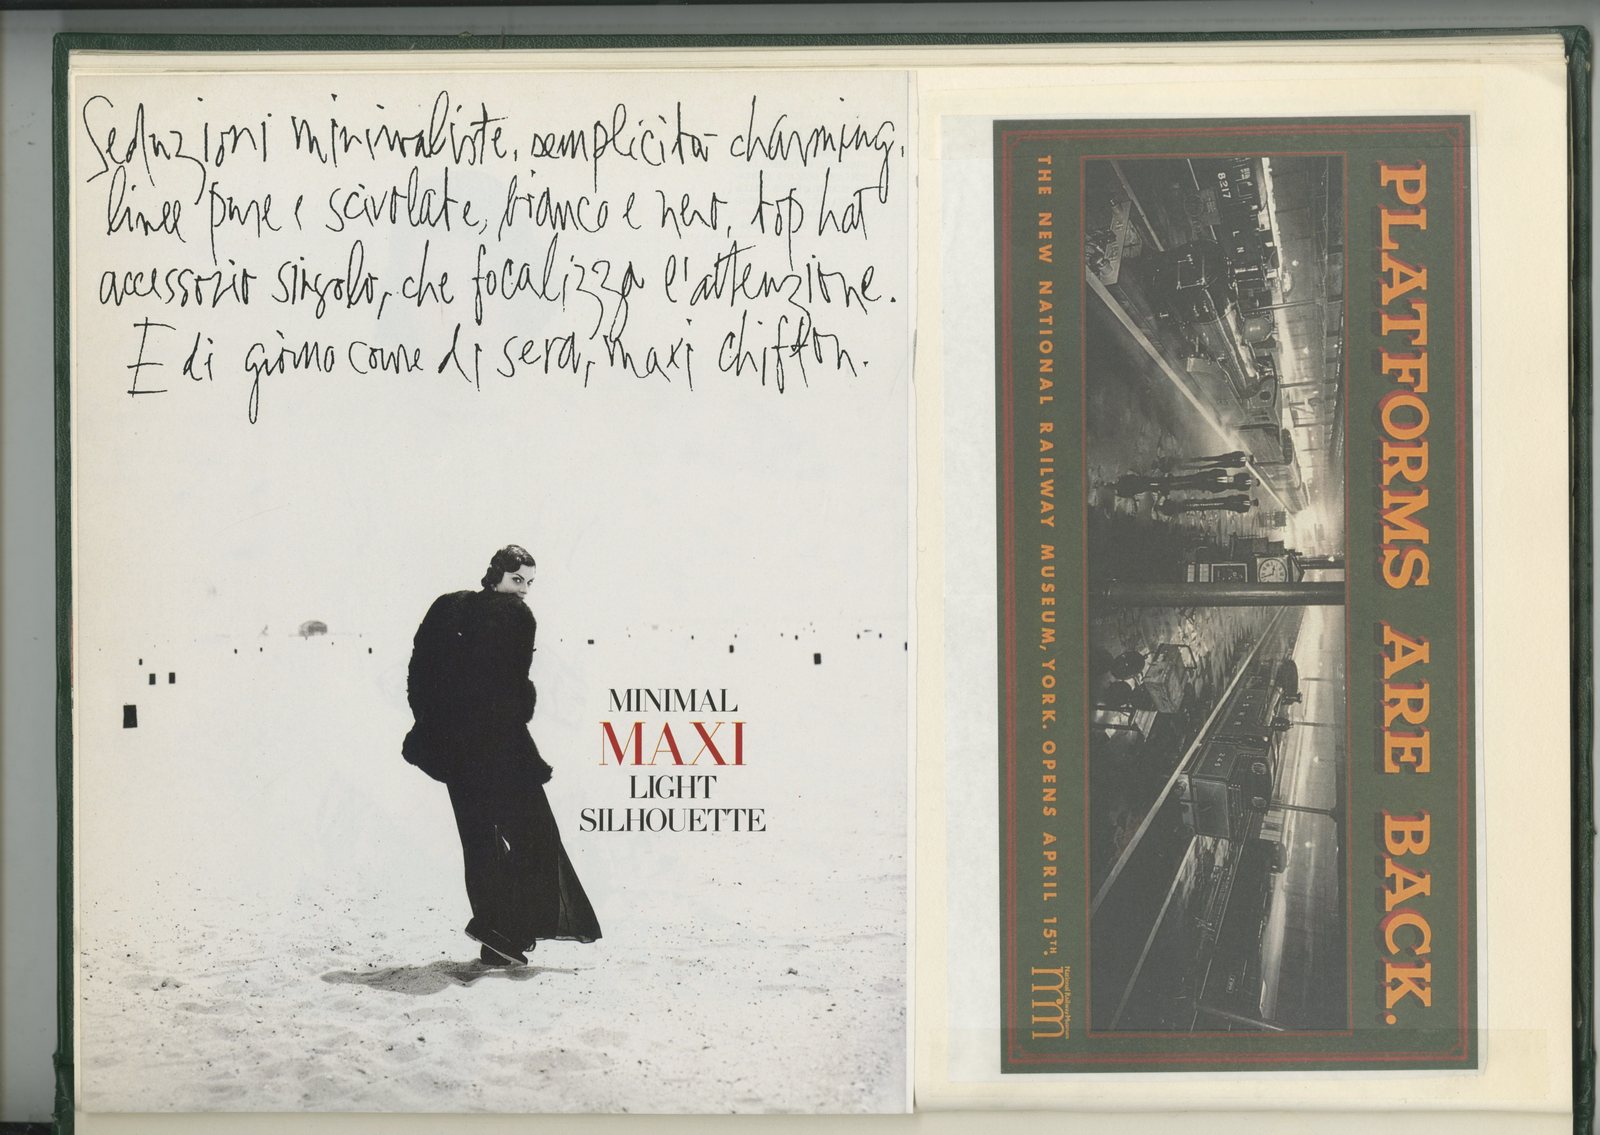 Seduzioni minimaliste, semplicità charming,
linee pure e scivolate, bianco e nero, top hat
accessorio singolo, che focalizza l'attenzione.
E di giorno come di sera, maxi chiffon.
MINIMAL
MAXI
LIGHT
SILHOUETTE
PLATFORMS ARE BACK.
8217
245
THE NEW NATIONAL RAILWAY MUSEUM, YORK. OPENS APRIL 15TH.
National Railway Museum
nrm